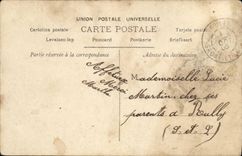 UNION POSTALE UNIVERSELLE
CARTE POSTALE
Cartolina postale
Tarjeta postal
Levelezö-lap
Postcard
Postkarte
Briefkaart
Partie réservée à la correspondance
Adresse du destinataire
Affectueux
Merci
Mademoiselle Lucie
Martin, chez ses
parents à Rully
(S.-et-L.)